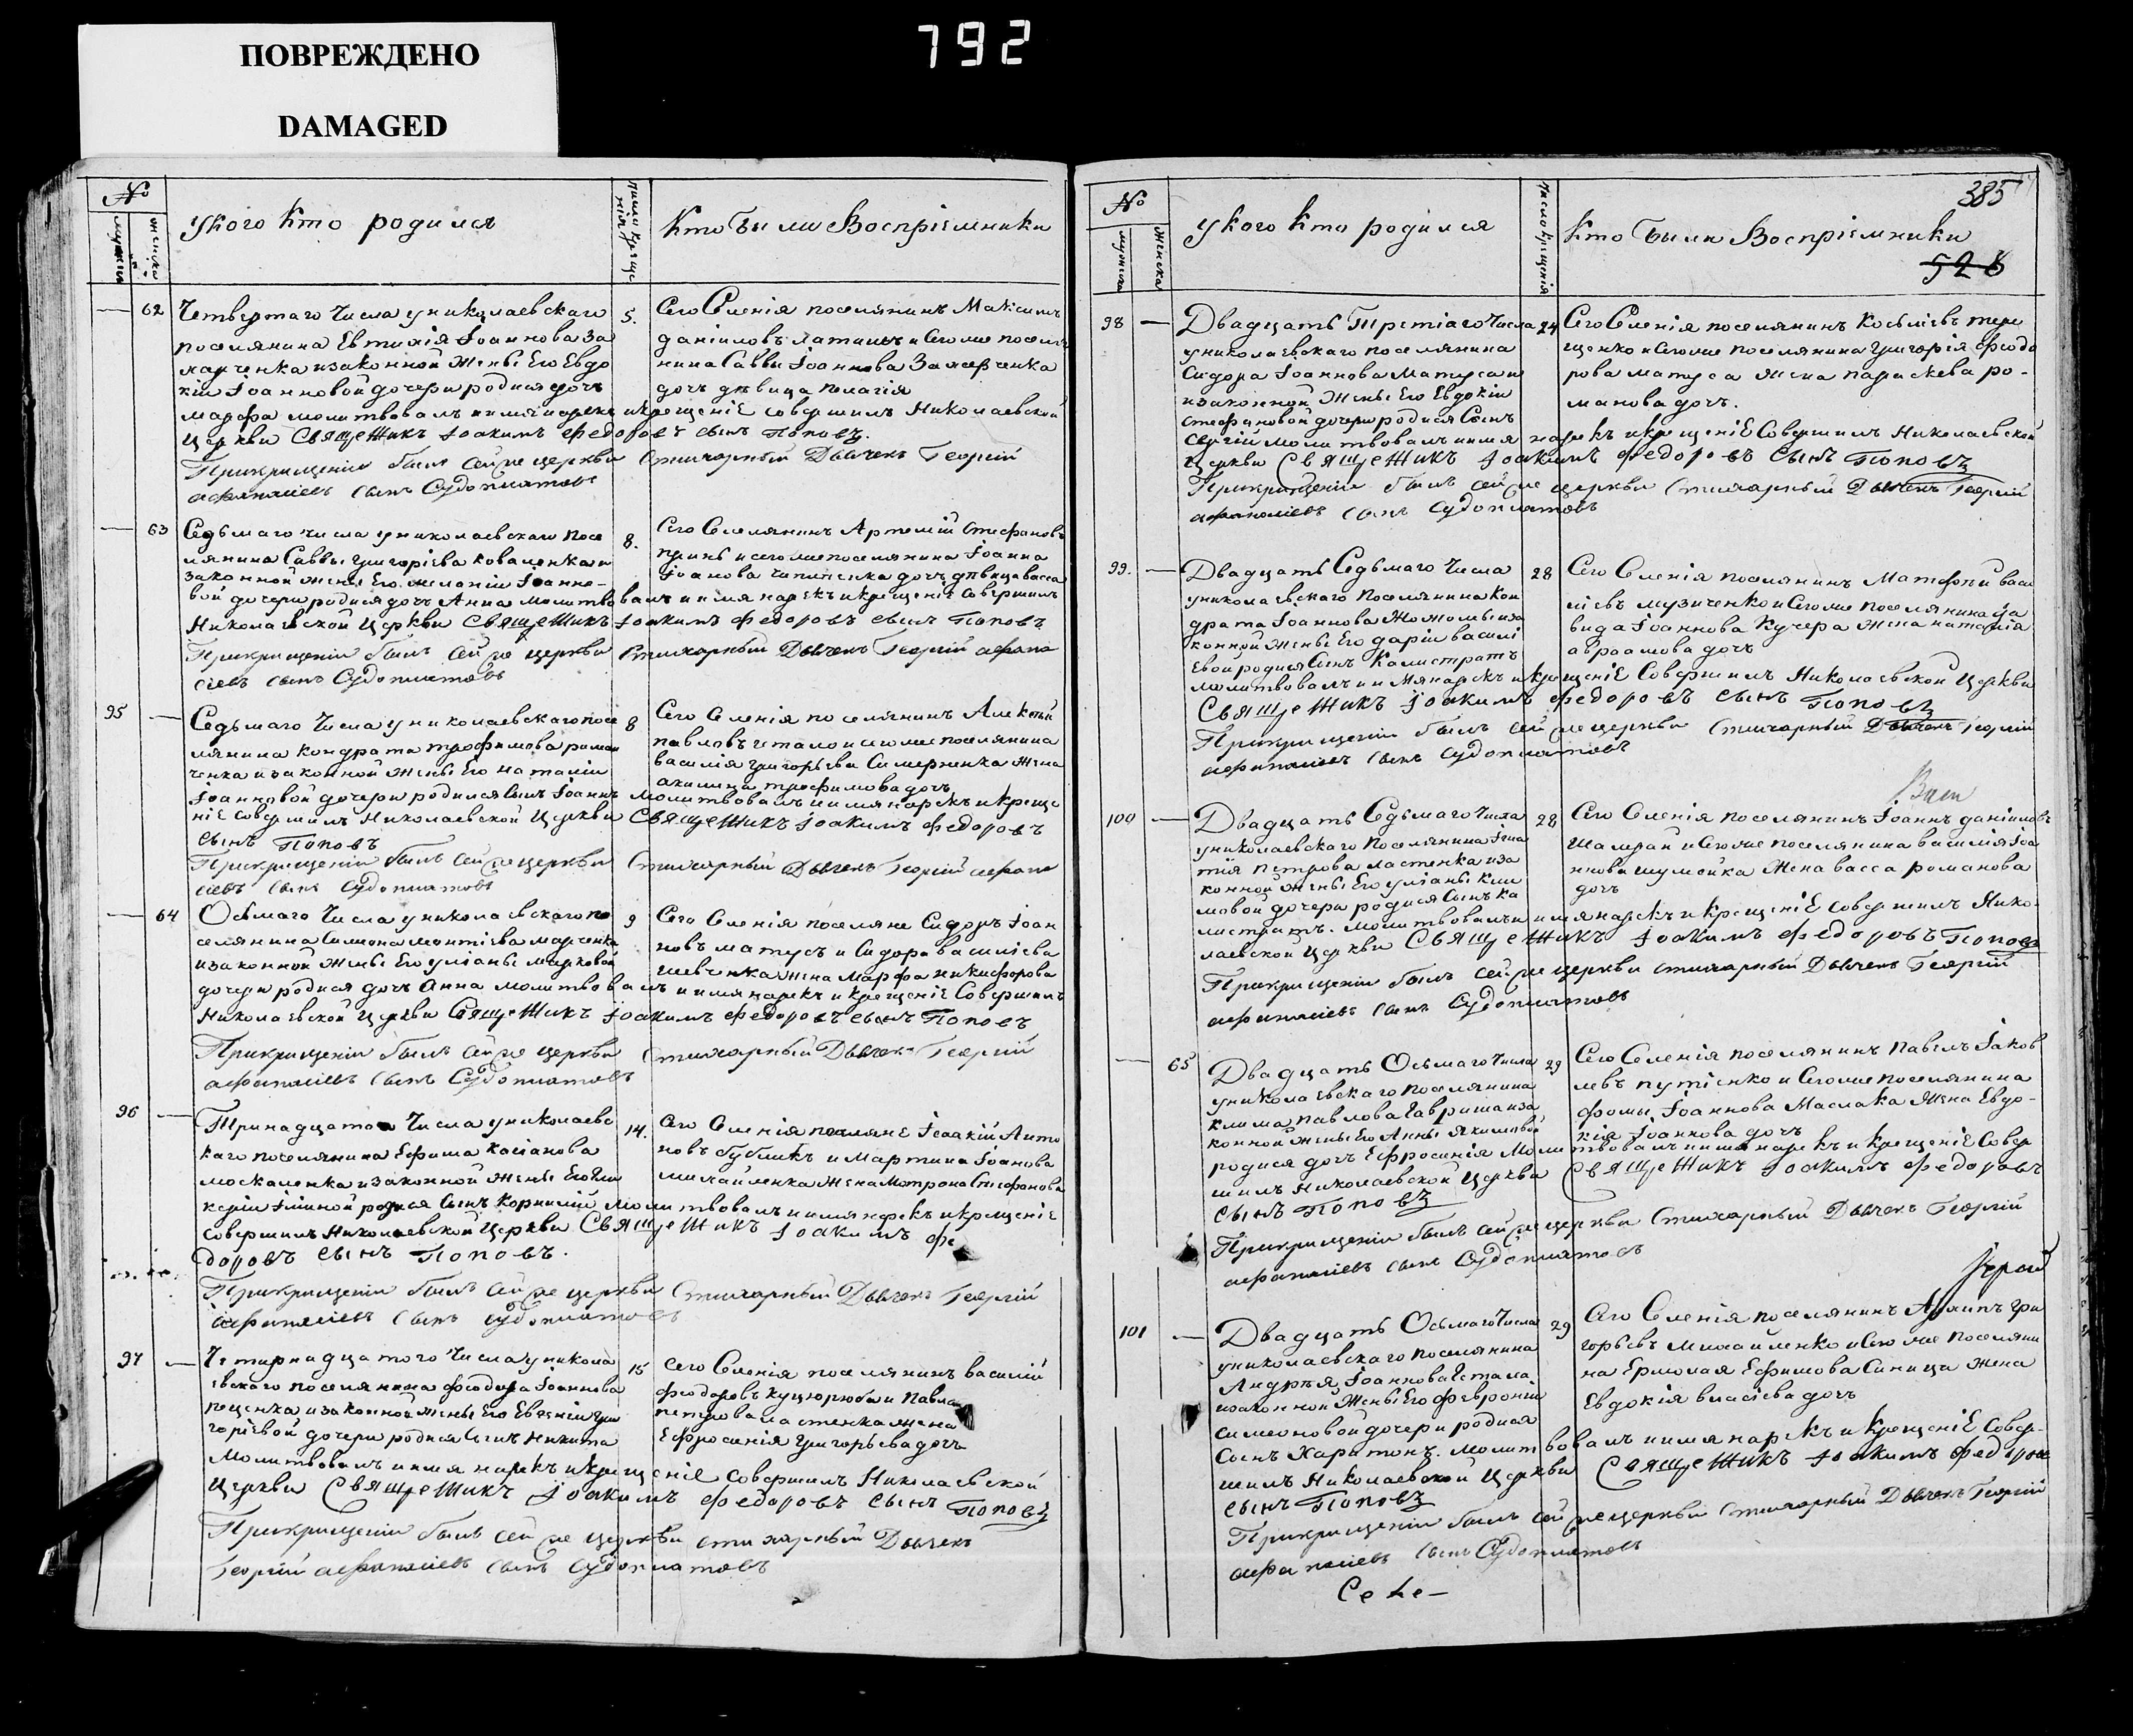 ПОВРЕЖДЕНО
DAMAGED
792
№
мужеска
женска
У кого кто родился
число крещенія
Кто были Воспріемники
62
Четвертаго Числа у николаевскаго
поселянина Евтихія Іоаннова За
харченка и законной Жены Его Евдо
кіи Іоанновой дочери родися дочь
марфа молитвовалъ и имя нарекъ и крещеніЕ совершилъ Николаевской
Церкви СвящеННикъ Іоакимъ Федоровъ сынъ Поповъ.
При крещеніи былъ сей же церкви Стихарный Дьячекъ Георгій
афанасіевъ сынъ Судоплатовъ
5.
Сего Селенія поселянинъ Максимъ
даніиловъ и сего же поселя
нина Саввы Іоаннова Захарченка
дочь дѣвица пелагія
63
Седьмаго числа у николаевскаго посе
лянина Саввы григоріева коваленка и
законной жены Его мелании Іоанно-
вой дочери родися дочь Анна молитвовалъ и имя нарекъ и крещеніЕ Совершилъ
Николаевской Церкви СвящеННикъ Іоакимъ Федоровъ сынъ Поповъ
При крещеніи былъ сей же церкви Стихарный Дьячекъ Георгій афана
сіевъ сынъ Судоплатовъ
8.
Сего Селянинъ Артемій Стефановъ
и сего же поселянина Іоанна
Іоанова дочь дѣвица васса
95
Седьмаго Числа у николаевскаго посе
лянина кондрата трофимова роман
ченка и законной Жены Его наталіи
Іоанновой дочери родился сынъ Іоаннъ молитвовалъ и имя нарекъ и креще
ніЕ совершилъ Николаевской Церкви СвящеННикъ Іоакимъ Федоровъ
сынъ Поповъ
При крещеніи былъ сей же церкви Стихарный Дьячекъ Георгій афана
сіевъ сынъ Судоплатовъ
8
Сего Селенія поселянинъ Алексѣй
павловъ гетало и сего же поселянина
василія григорьева Жена
акилина трофимова дочь
64
Осьмаго Числа у николаевскаго по
селянина Симеона марченка
и законной Жены Его уліаны марковой
дочери родися дочь Анна молитвовалъ и имя нарекъ и крещеніЕ Совершилъ
Николаевской Церкви СвящеННикъ Іоакимъ Федоровъ сынъ Поповъ
При крещеніи былъ сей же церкви Стихарный Дьячекъ Георгій
афанасіевъ сынъ Судоплатовъ
9
Сего Селенія поселяне Сидоръ Іоан
новъ матусъ и Сидора василіева
шевченка Жена Марфа никифорова
96
Тринадцатого Числа у николаевс
каго поселянина Ефима касіанова
москаленка и законной Жены Его
родися Сынъ Корнилій молитвовалъ и имя нарекъ и крещеніЕ
совершилъ Николаевской Церкви СвящеННикъ Іоакимъ Фе
доровъ сынъ Поповъ.
При крещеніи былъ сей же церкви Стихарный Дьячекъ Георгій
афанасіевъ сынъ Судоплатовъ
14.
Сего Селенія поселянЕ Ісаакій Анто
новъ бубликъ и Мартина Іоанова
михайленка Жена Матрона Стефанова
97
Четырнадцатого Числа у никола
евскаго поселянина феодора Іоаннова
и законной жены Его Евгеніи гри
горіевой дочери родися Сынъ никита
молитвовалъ и имя нарекъ и крещеніЕ совершилъ Николаевской
Церкви СвящеННикъ Іоакимъ Федоровъ Сынъ Поповъ
При крещеніи былъ сей же церкви стихарный Дьячекъ
Георгій афанасіевъ сынъ Судоплатовъ
15
Сего Селенія поселянинъ василій
феодоровъ и Павла
петрова ластенка жена
Ефросинія григорьева дочь
385
№
мужеска
женска
У кого кто родился
число крещенія
Кто были Воспріемники
526
98
Двадцать Третіаго Числа
у николаевскаго поселянина
Сидора Іоаннова Матуса и
и законной Жены Его Евдокіи
Стефановой дочери родися Сынъ
Сергій молитвовалъ и имя нарекъ и крещеніЕ Совершилъ Николаевской
Церкви СвящеННикъ Іоакимъ Федоровъ Сынъ Поповъ
При крещеніи былъ сей же церкви Стихарный Дьячекъ Георгій
афанасіевъ сынъ Судоплатовъ
24
Сего Селенія поселянинъ Косьма тере
щенко и Сего же поселянина Григорія феодо
рова матуса Жена параскева ро-
манова дочь.
99.
Двадцать Седьмаго Числа
у николаевскаго Поселянина Кон
драта Іоаннова и за
конной Жены Его дарьи василі
Евой родися Сынъ Калистратъ
молитвовалъ и имя нарекъ и крещеніЕ Совершилъ Николаевской Церкви
СвящеННикъ Іоакимъ Федоровъ Сынъ Поповъ
При крещеніи былъ сей же церкви Стихарный Дьячекъ Георгій
афанасіевъ сынъ Судоплатовъ
28
Сего Селенія поселянинъ Матфей васи
ліевъ музиченко и Сего же поселянина да
вида Іоаннова Кучера Жена наталія
авраамова дочь
100
Двадцать Седьмаго Числа
у николаевскаго Поселянина Игна
тія Петрова ластенка и за
конной Жены Его уліаны Кли
мовой дочери родися Сынъ Ка
листратъ. молитвовалъ и имя нарекъ и крещеніЕ совершилъ Нико-
лаевской Церкви СвящеННикъ Іоакимъ Федоровъ Поповъ
При крещеніи былъ сей же церкви Стихарный Дьячекъ Георгій
афанасіевъ сынъ Судоплатовъ
28
Сего Селенія поселянинъ Іоаннъ даніиловъ
Шамрай и Сего же поселянина василія Іоа
ннова шумейка Жена васса романова
дочь
65
Двадцать Осьмаго Числа
у николаевскаго поселянина
клима павлова Гавриша и за
конной Жены Его Анны Якимовой
родися дочь Ефросинія Молитвовалъ и имя нарекъ и крещеніЕ Совер
шилъ Николаевской Церкви СвящеННикъ Іоакимъ Федоровъ
Сынъ Поповъ
При крещеніи былъ сей же церкви Стихарный Дьячекъ Георгій
афанасіевъ сынъ Судоплатовъ
29
Сего Селенія поселянинъ Павелъ Іаков
левъ путіенко и Сего же поселянина
фомы Іоаннова Маслака Жена Евдо-
кія Іоаннова дочь
101
Двадцать Осьмаго Числа
у николаевскаго поселянина
Андрѣя Іоаннова Гетала
и законной Жены Его Февроніи
симеоновой дочери родися
Сынъ Харитонъ. молитвовалъ и имя нарекъ и крещеніЕ Совер-
шилъ Николаевской Церкви СвящеННикъ Іоакимъ Федоровъ
Сынъ Поповъ
При крещеніи былъ сей же церкви Стихарный Дьячекъ Георгій
афанасіевъ сынъ Судоплатовъ
29
Сего Селенія поселянинъ Архипъ гри
горьевъ Михайленко и Сего же поселяни
на Ермолая Ефимова Синица Жена
Евдокія власіева дочь